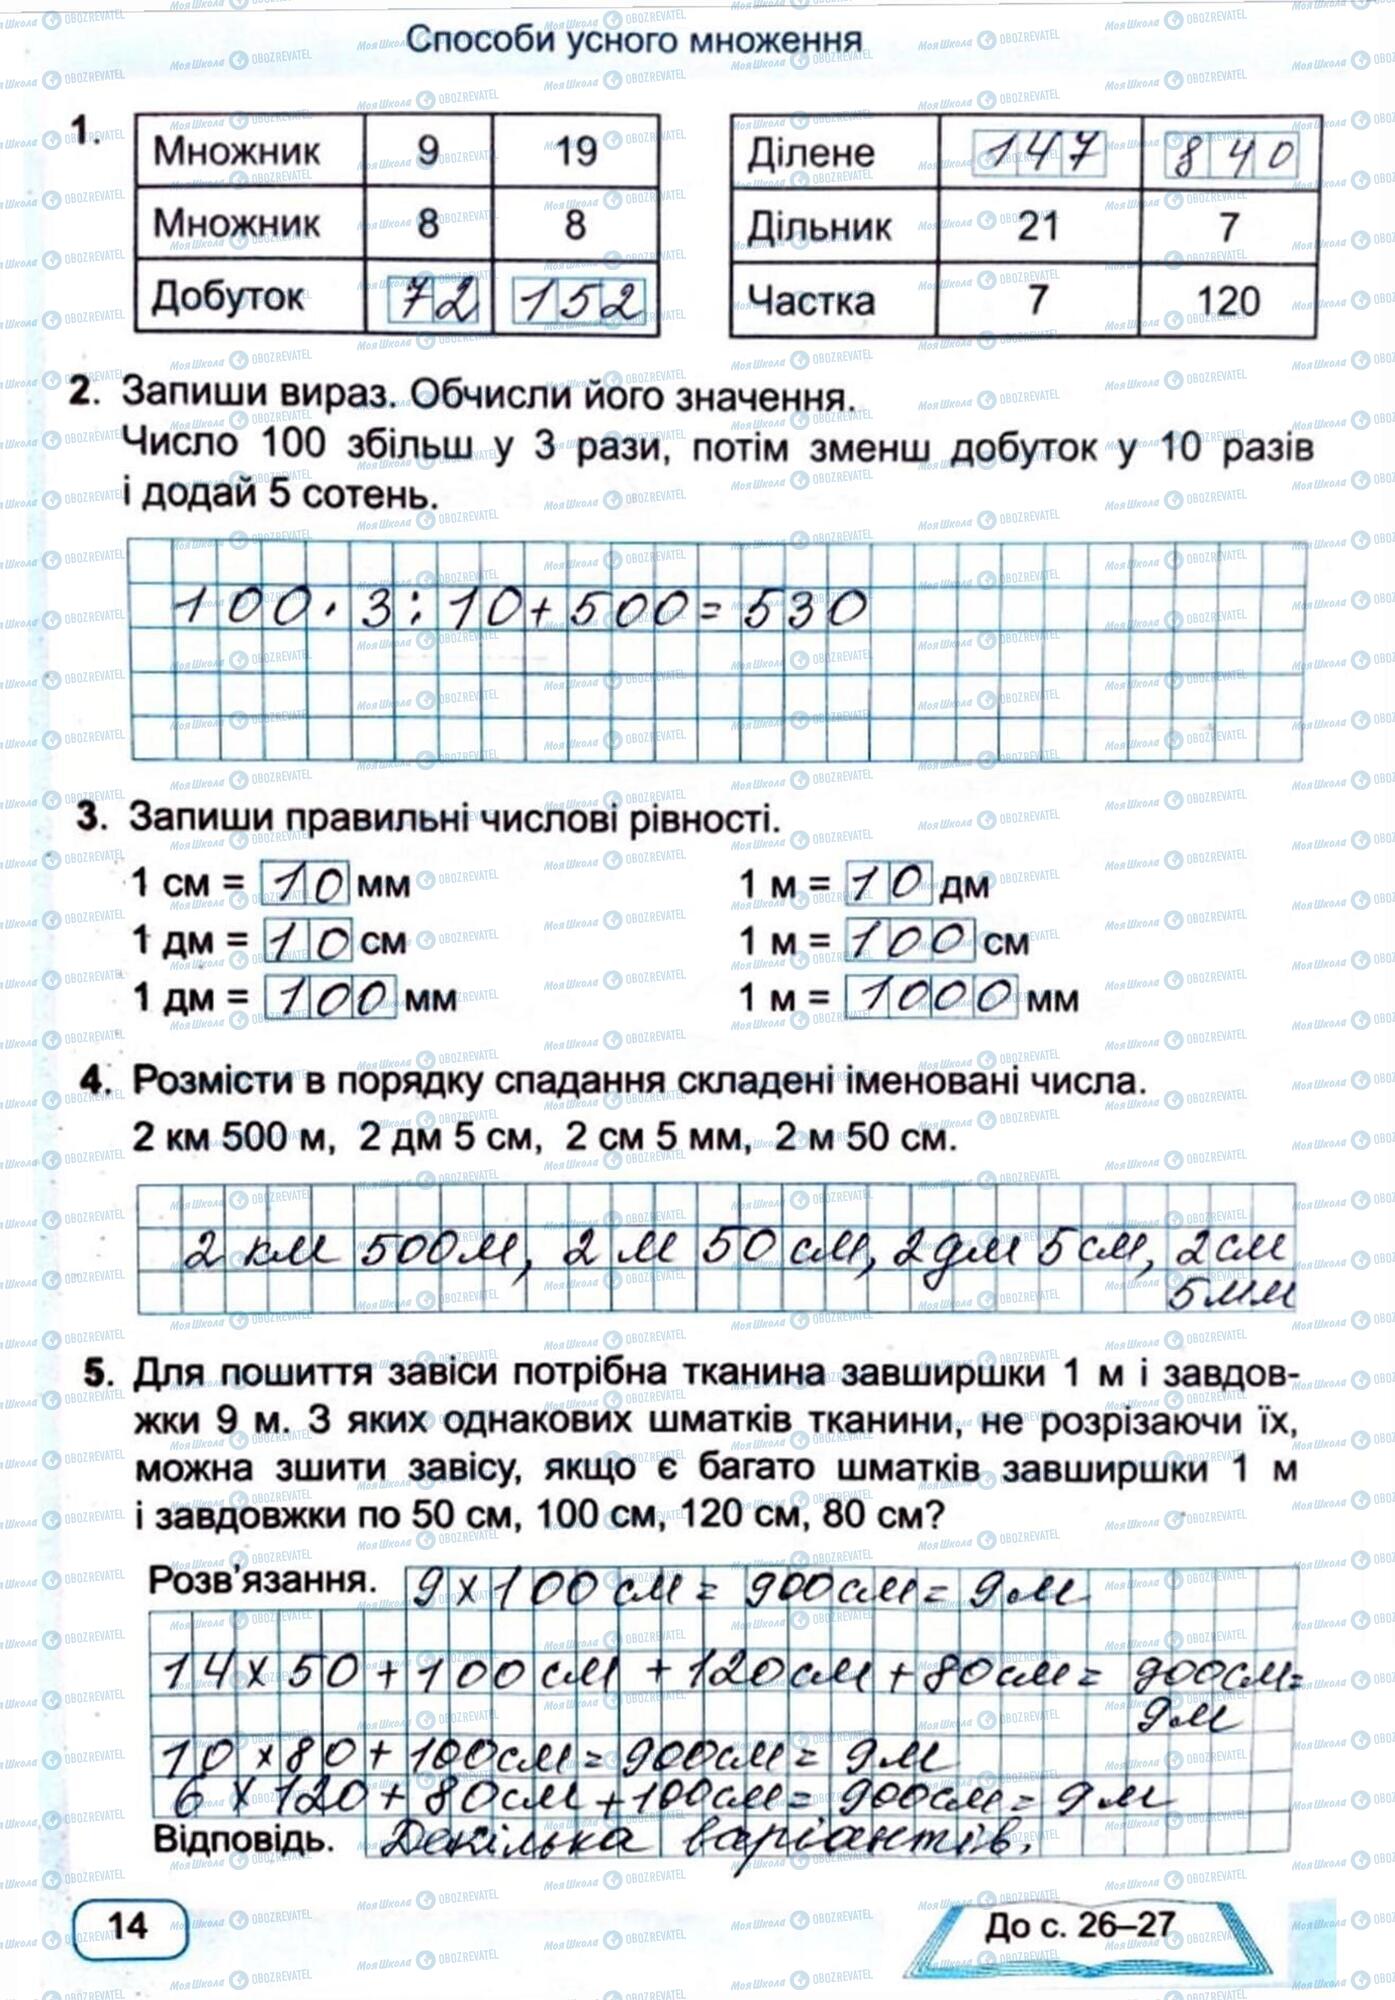 Способи усного множення
1.
Множник 9 19
Множник 8 8
Добуток 72 152
Ділене 147 840
Дільник 21 7
Частка 7 120
2. Запиши вираз. Обчисли його значення.
Число 100 збільш у 3 рази, потім зменш добуток у 10 разів
і додай 5 сотень.
100 · 3 : 10 + 500 = 530
3. Запиши правильні числові рівності.
1 см = 10 мм 1 м = 10 дм
1 дм = 10 см 1 м = 100 см
1 дм = 100 мм 1 м = 1000 мм
4. Розмісти в порядку спадання складені іменовані числа.
2 км 500 м, 2 дм 5 см, 2 см 5 мм, 2 м 50 см.
2 км 500 м, 2 м 50 см, 2 дм 5 см, 2 см
5 мм
5. Для пошиття завіси потрібна тканина завширшки 1 м і завдов-
жки 9 м. З яких однакових шматків тканини, не розрізаючи їх,
можна зшити завісу, якщо є багато шматків завширшки 1 м
і завдовжки по 50 см, 100 см, 120 см, 80 см?
Розв'язання. 9 х 100 см = 900 см = 9 м
14 х 50 + 100 см + 120 см + 80 см = 900 см =
9 м
10 х 80 + 100 см = 900 см = 9 м
6 х 120 + 80 см + 100 см = 900 см = 9 м
Відповідь. Декілька варіантів.
14
До с. 26–27
Моя Школа OBOZREVATEL